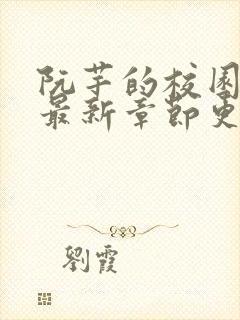 阮芋的校园
最新章節更
劉霞